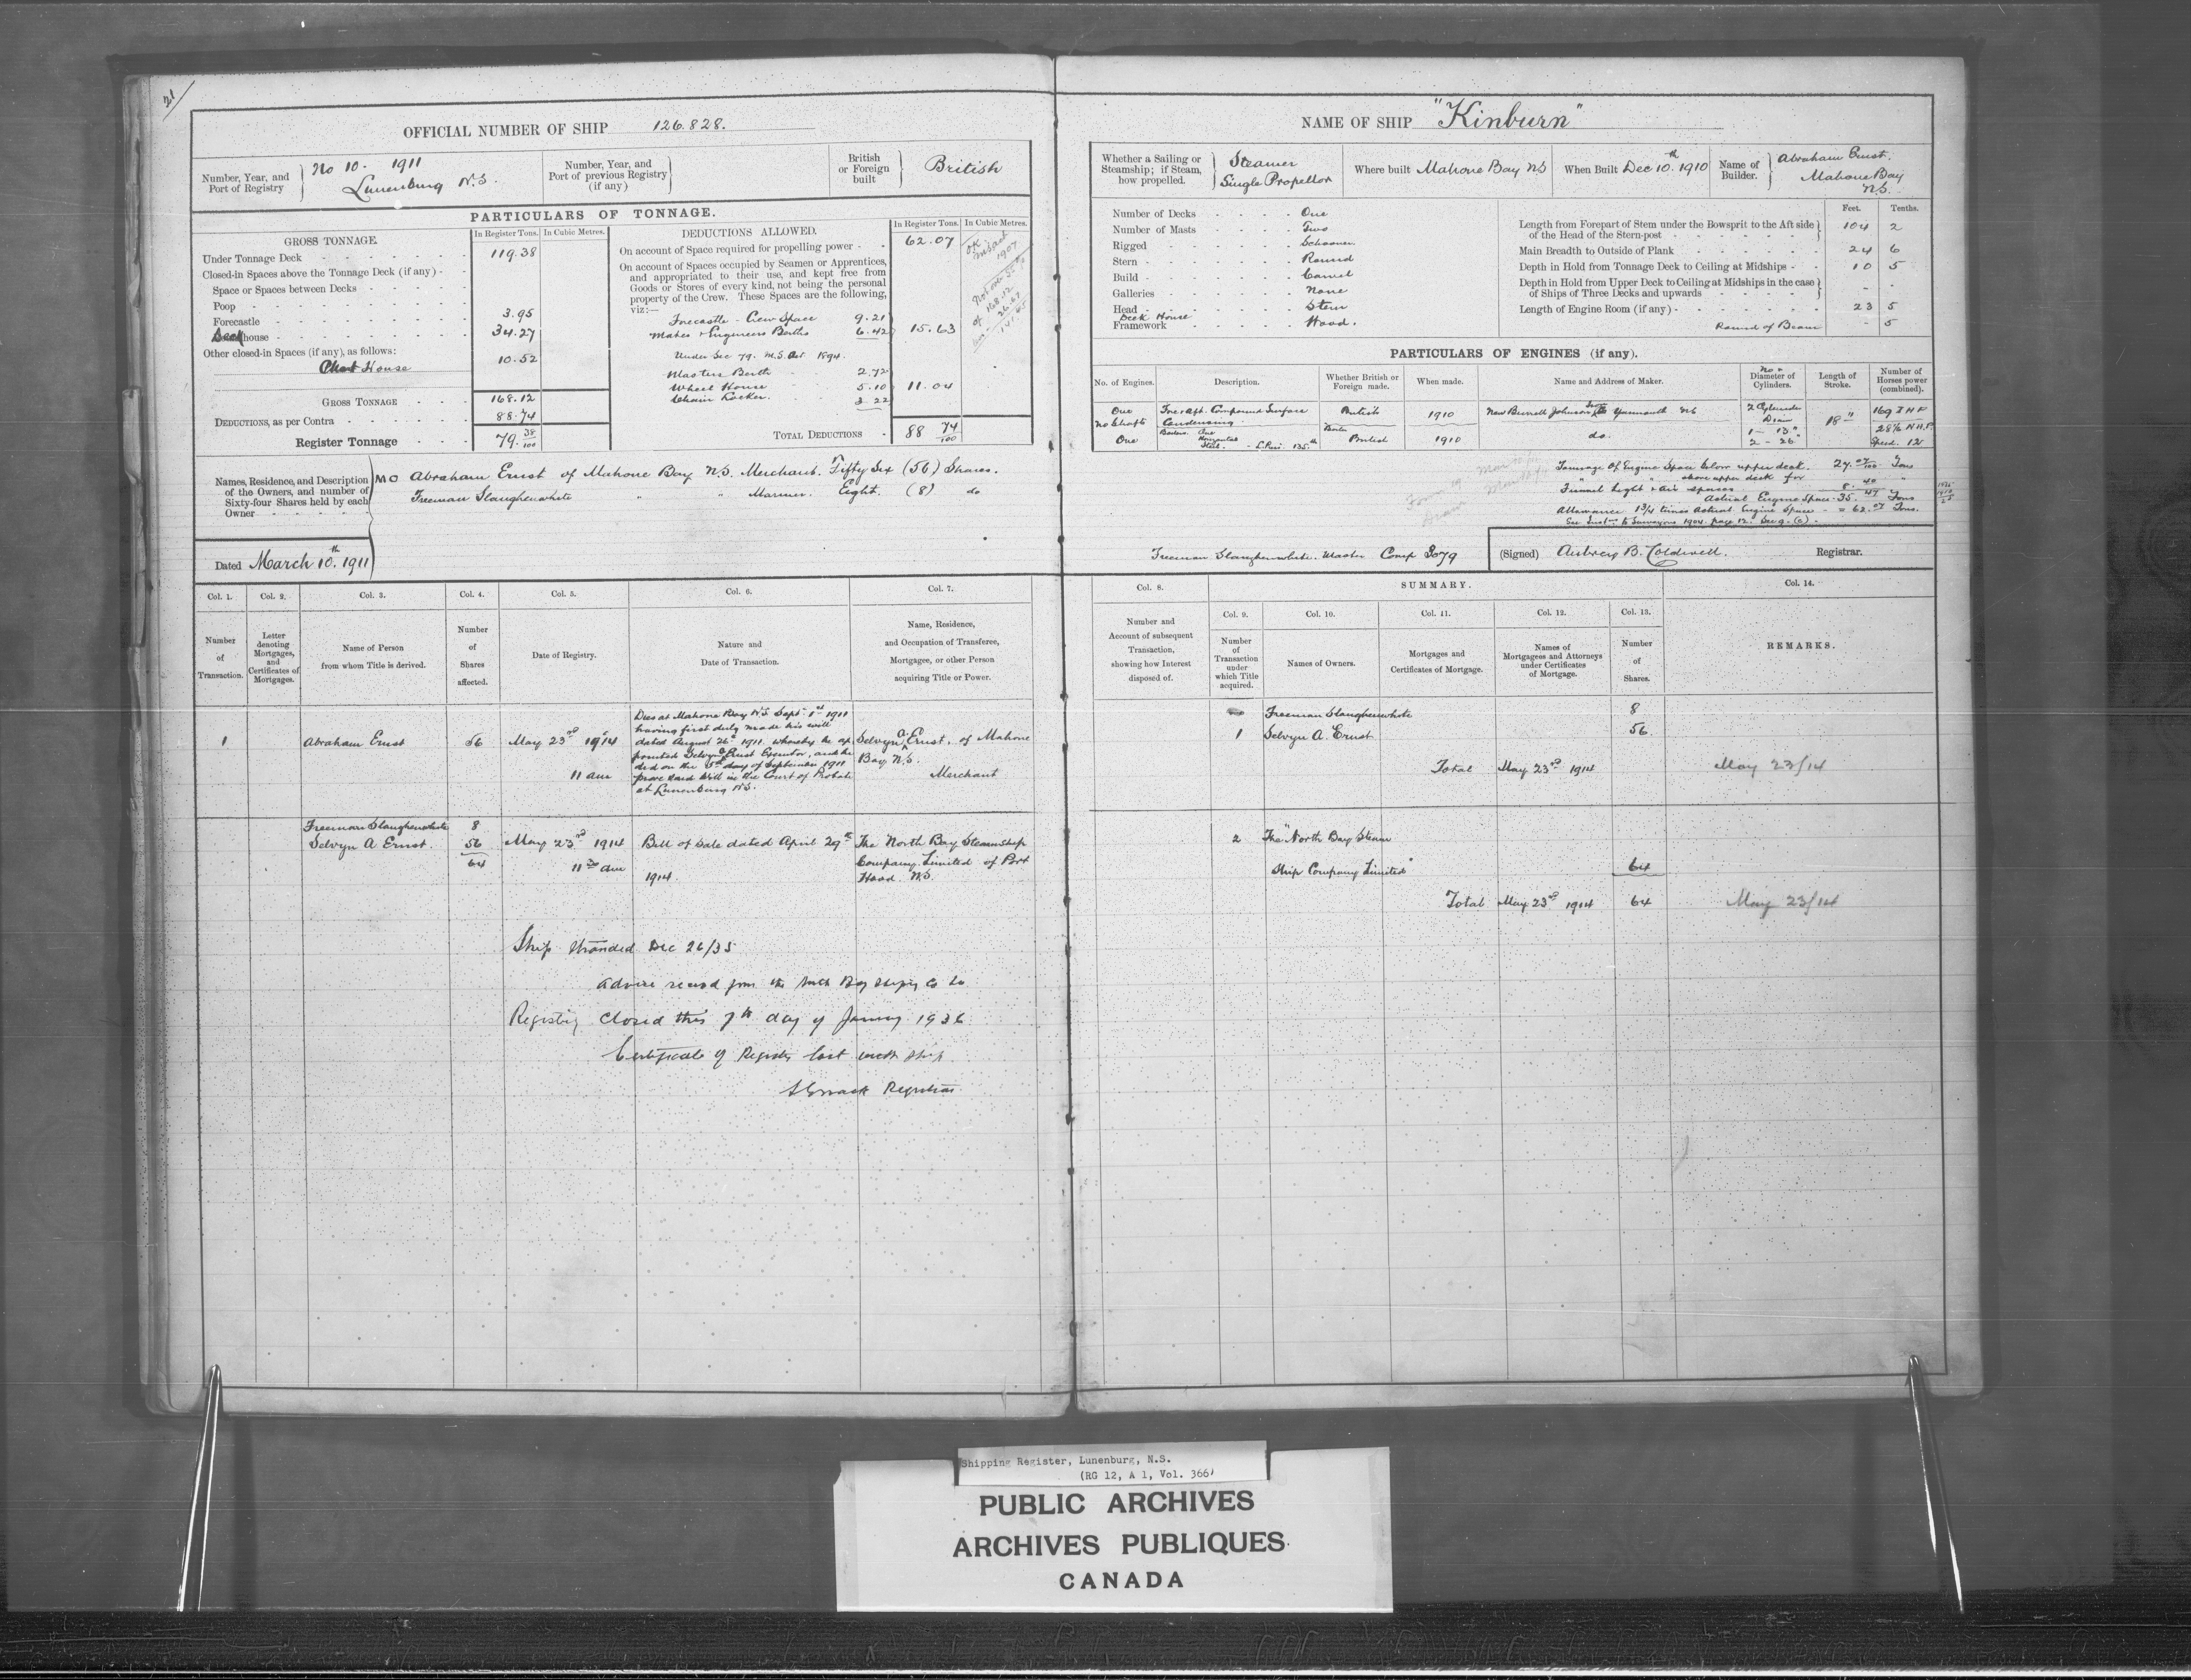 21
OFFICIAL NUMBER OF SHIP 126.828.
Number, Year, and Port of Registry } No 10. 1911
Lunenburg N.S.
Number, Year, and Port of previous Registry (if any)
British or Foreign built } British
PARTICULARS OF TONNAGE.
GROSS TONNAGE.
In Register Tons. In Cubic Metres.
Under Tonnage Deck 119.38
Closed-in Spaces above the Tonnage Deck (if any) -
Space or Spaces between Decks
Poop
Forecastle 3.95
Deck house 34.27
Other closed-in Spaces (if any), as follows:
Chart House 10.52
GROSS TONNAGE 168.12
DEDUCTIONS, as per Contra 88.74
Register Tonnage 79. 38/100
DEDUCTIONS ALLOWED.
In Register Tons. In Cubic Metres.
On account of Space required for propelling power - 62.07
On account of Spaces occupied by Seamen or Apprentices,
and appropriated to their use, and kept free from
Goods or Stores of every kind, not being the personal
property of the Crew. These Spaces are the following,
viz:—
Forecastle - Crew Space 9.21
Mates & Engineers Berths 6.42 15.63
Under Sec 79. M.S. Act 1894.
Masters Berth 2.72
Wheel House 5.10 11.04
Chain Locker. 3.22
TOTAL DEDUCTIONS - 88 74/100
Names, Residence, and Description of the Owners, and number of Sixty-four Shares held by each Owner
MO Abraham Ernst of Mahone Bay N.S. Merchant. Fifty Six (56) Shares.
Freeman Slaughenwhite " " Mariner. Eight. (8) do
Dated March 10th. 1911
NAME OF SHIP "Kinburn"
Whether a Sailing or Steamship; if Steam, how propelled. } Steamer
Single Propellor
Where built Mahone Bay NS
When Built Dec 10th. 1910
Name of Builder. } Abraham Ernst.
Mahone Bay
N.S.
Number of Decks One
Number of Masts Two
Rigged Schooner
Stern Round
Build Carvel
Galleries None
Head Stem
Deck House
Framework Wood.
Feet. Tenths.
Length from Forepart of Stem under the Bowsprit to the Aft side of the Head of the Stern-post 104 2
Main Breadth to Outside of Plank 24 6
Depth in Hold from Tonnage Deck to Ceiling at Midships - 10 5
Depth in Hold from Upper Deck to Ceiling at Midships in the case of Ships of Three Decks and upwards - -
Length of Engine Room (if any) - 23 5
Round of Beam - 5
PARTICULARS OF ENGINES (if any).
No. of Engines. Description. Whether British or Foreign made. When made. Name and Address of Maker. No & Diameter of Cylinders. Length of Stroke. Number of Horses power (combined).
One Fore & Aft. Compound Surface British 1910 New Burrell Johnson Iron Co Yarmouth NS 2 Cylinders 18" 169 I H P
No Shafts Condensing. Diam 28½ N.H.P.
Boilers. One Boiler 1 - 13"
One Horizontal Steel. - L. Pres. 135 lb British 1910 do. 2 - 26" Speed. 12
Tonnage of Engine Space below upper deck. 27. 07/100 Tons
above upper deck for
Funnel Light & air spaces 8. 40 "
Actual Engine Space - 35. 47 Tons
Allowance 1¾ times Actual Engine Space - = 62.07 Tons.
See Inst. to Surveyors 1904. page 12. Sec 9. (c).
Freeman Slaughenwhite. Master Comp 3079
(Signed) Aubrey B. Coldwell. Registrar.
Col. 1. Col. 2. Col. 3. Col. 4. Col. 5. Col. 6. Col. 7.
Number of Transaction.
Letter denoting Mortgages, and Certificates of Mortgages.
Name of Person from whom Title is derived.
Number of Shares affected.
Date of Registry.
Nature and Date of Transaction.
Name, Residence, and Occupation of Transferee, Mortgagee, or other Person acquiring Title or Power.
1 Abraham Ernst 56 May 23rd 1914
11 am
Dies at Mahone Bay N.S. Sept. 1st 1911
having first duly made his will
dated August 26th 1911. whereby he ap
pointed Selvyn A Ernst Executor, and he
did on the 5th day of September 1911
prove said Will in the Court of Probate
at Lunenburg N.S.
Selvyn A. Ernst, of Mahone
Bay N.S.
Merchant
Freeman Slaughenwhite 8
Selvyn A Ernst. 56
64
May 23rd 1914
11 30 am
Bill of Sale dated April 29th
1914.
The North Bay Steamship
Company Limited of Port
Hood. N.S.
Ship stranded Dec 26/35
Advice receivd from the North Bay Shipg Co Ltd
Registry closed this 7th day of January 1936
Certificate of Register lost with ship
Registrar
Col. 8. SUMMARY. Col. 14.
Col. 9. Col. 10. Col. 11. Col. 12. Col. 13.
Number and Account of subsequent Transaction, showing how Interest disposed of.
Number of Transaction under which Title acquired.
Names of Owners.
Mortgages and Certificates of Mortgage.
Names of Mortgagees and Attorneys under Certificates of Mortgage.
Number of Shares.
REMARKS.
Freeman Slaughenwhite 8
1 Selvyn A. Ernst 56
Total May 23rd 1914 May 23/14
2 The "North Bay Steam
Ship Company Limited" 64
Total May 23rd 1914 64 May 23/14
Shipping Register, Lunenburg, N.S.
(RG 12, A 1, Vol. 366)
PUBLIC ARCHIVES
ARCHIVES PUBLIQUES
CANADA